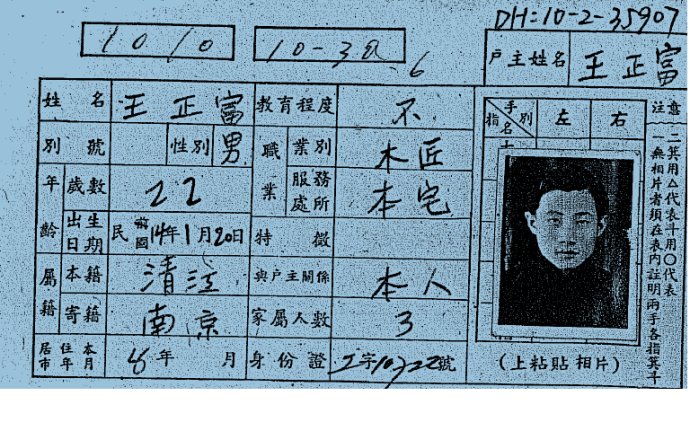 DH:10-2-35907
1010
戶主姓名 王正富
姓名 王正富 教育程度 不
別號 性別 男 職業 業別 木匠
年齡 歲數 22 服務處所 本宅
出生日期 民國前14年1月20日 特徵
屬籍 本籍 清江 與戶主關係 本人
寄籍 南京 家屬人數 3
居住本市年月 年 月 身份證 字 號
手別 指名 左 右
注意
一無相片者須在表內註明兩手各指箕斗
二箕用△代表斗用〇代表
(上粘貼相片)